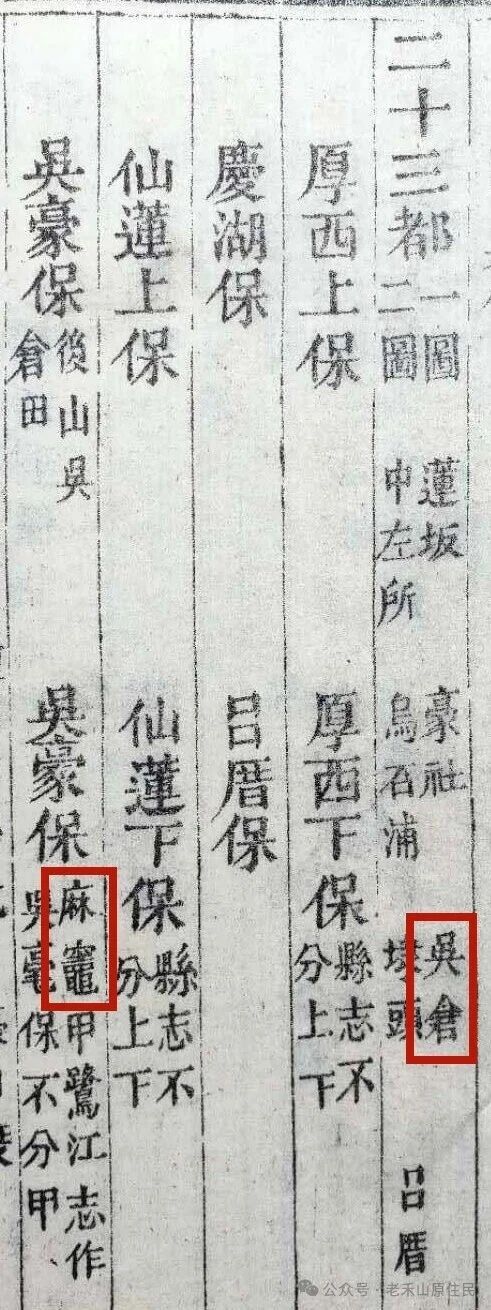 二十三都 一圖 二圖 蓮坂 中左所 豪社 烏石浦 吳倉 埭頭 呂厝
厚西上保 厚西下保 縣志不分上下
慶湖保 呂厝保
仙蓮上保 仙蓮下保 縣志不分上下
吳豪保 後山 吳倉 田 吳豪保 麻竈甲鷺江志作吳毫保不分甲
公众号·老禾山原住民